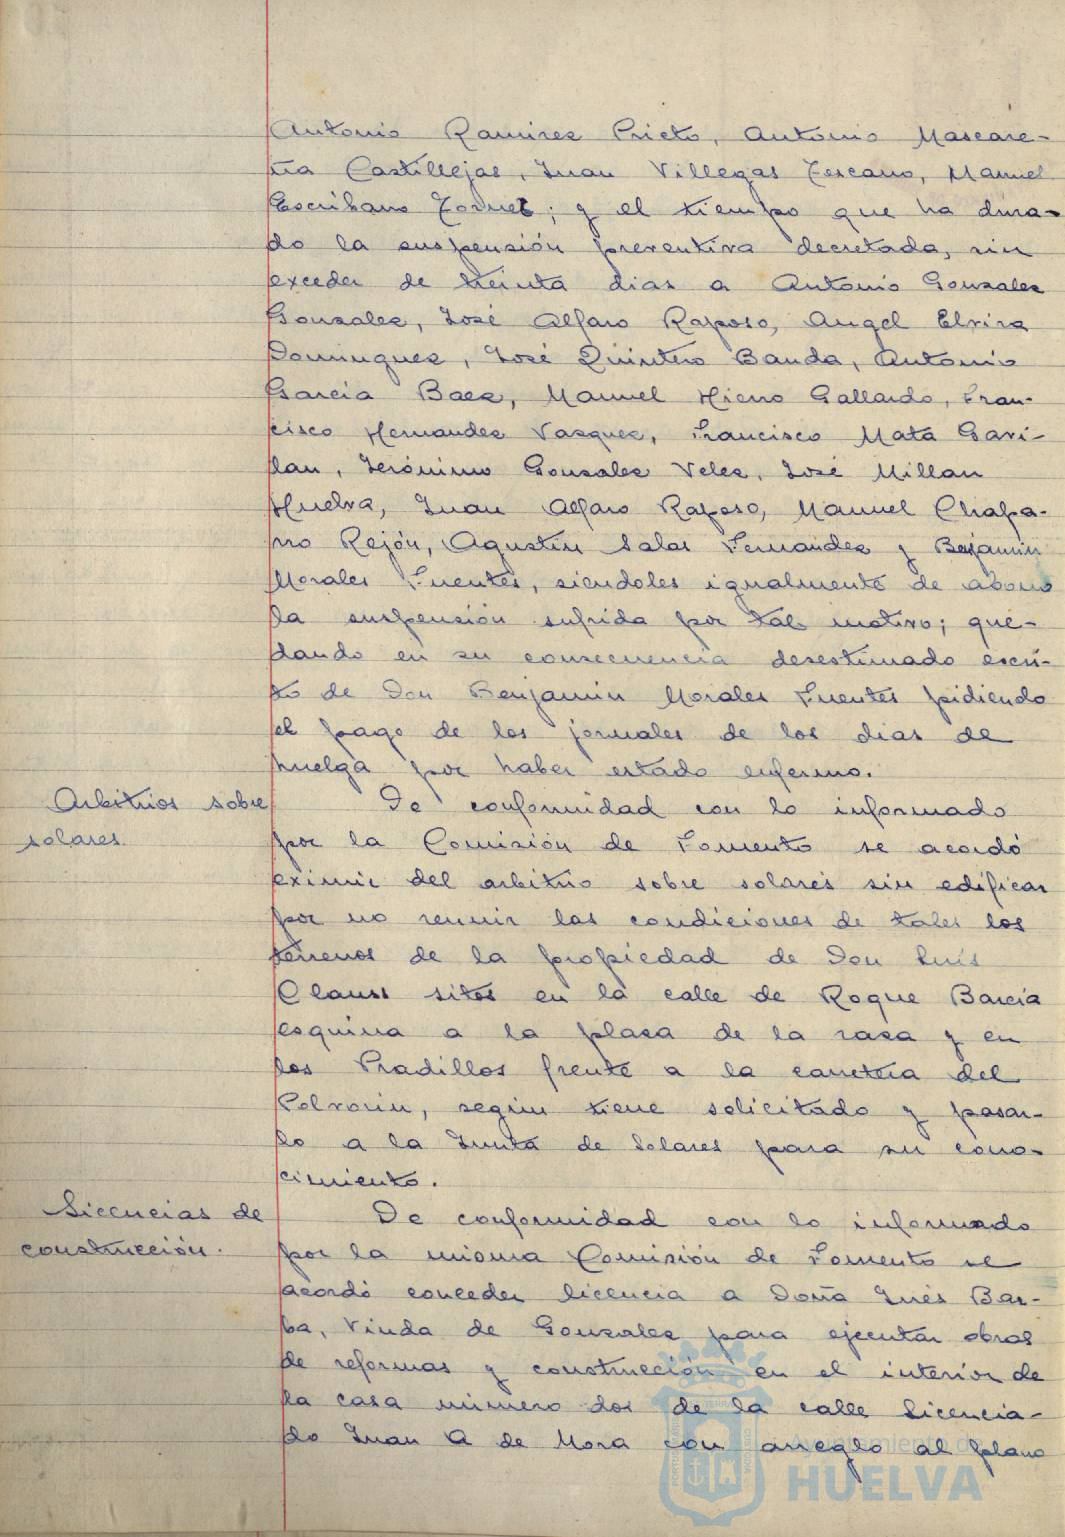 Antonio Ramirez Prieto, Antonio Mascare-
ña Castillejas, Juan Villegas Lescano, Manuel
Escribano Tornel; y el tiempo que ha dura-
do la suspensión preventiva decretada, sin
exceder de treinta dias a Antonio Gonzalez
Gonzalez, José Alfaro Raposo, Angel Elvira
Dominguez, José Quintero Banda, Antonio
García Baez, Manuel Hierro Gallardo, Fran-
cisco Hernandez Vazquez, Francisco Mata Gavi-
lan, Jerónimo Gonzalez Velez, José Millan
Huelva, Juan Alfaro Raposo, Manuel Chapa-
rro Rejón, Agustín Salas Fernandez y Benjamin
Morales Fuentes, siendoles igualmente de abono
la suspensión sufrida por tal motivo; que-
dando en su consecuencia desestimado escri-
to de Don Benjamin Morales Fuentes pidiendo
el pago de los jornales de los dias de
huelga por haber estado enfermo.
Arbitrios sobre
solares.
De conformidad con lo informado
por la Comisión de Fomento se acordó
eximir del arbitrio sobre solares sin edificar
por no reunir las condiciones de tales los
terrenos de la propiedad de Don Luís
Clauss sitos en la calle de Roque Barcia
esquina a la plaza de la raza y en
los Pradillos frente a la carretera del
Polvorin, según tiene solicitado y pasar-
lo a la Junta de Solares para su cono-
cimiento.
Licencias de
construcción.
De conformidad con lo informado
por la misma Comisión de Fomento se
acordó conceder licencia a Doña Inés Bar-
ba, Viuda de Gonzalez para ejecutar obras
de reformas y construcción en el interior de
la casa número dos de la calle Licencia-
do Juan A de Mora con arreglo al plano
Ayuntamiento de
HUELVA